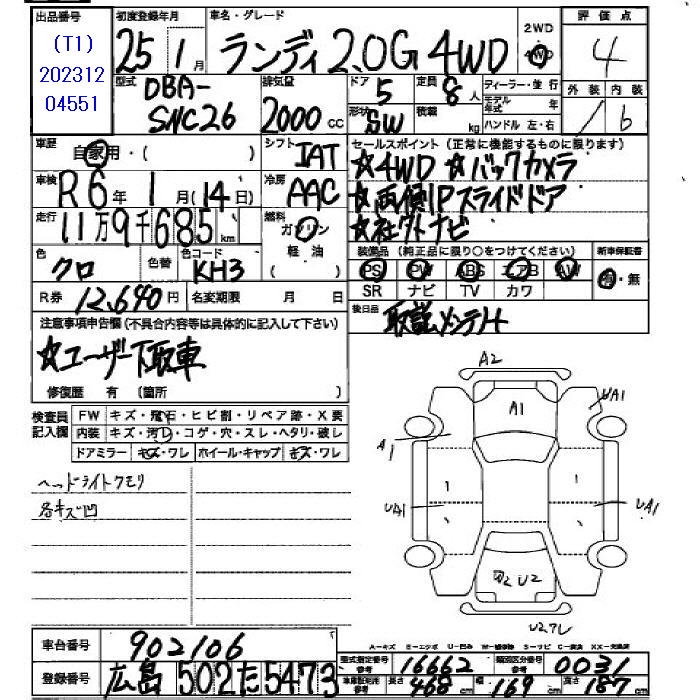 出品番号 初度登録年月 車名・グレード 2WD 評価点
(T1) 25年1月 ランディ 2.0G 4WD 4WD 4
202312
04551
型式 DBA-SNC26 排気量 2000cc ドア 5 定員 8人 ディーラー・並行 外装 内装
形状 SW 積載 kg モデル年式 年 ハンドル 左・右 / b
車歴 自家用・( ) シフト IAT セールスポイント(正常に機能するものに限ります)
車検 R6年1月(14日) 冷房 AAC ☆4WD ☆バックカメラ
☆両側Pスライドドア
走行 11万9千685km 燃料 ガソリン 軽油 ( ) ☆社外ナビ
色 クロ 色替 色コード KH3 装備品(純正品に限り○をつけてください) 新車保証書
PS PW ABS エアB AW 有・無
R券 12,640円 名変期限 月 日 SR ナビ TV カワ
注意事項申告欄(不具合内容等は具体的に記入して下さい) 後日品 取説メンテノート
☆ユーザー下取車
修復歴 有 (箇所 )
検査員記入欄 FW キズ・飛石・ヒビ割・リペア跡・X要
内装 キズ・汚レ・コゲ・穴・スレ・ヘタリ・破レ
ドアミラー キズ・ワレ ホイール・キャップ キズ・ワレ
ヘッドライトクモリ
各キズ凹
A2
UA1
A1
A1
UA1
UA1
U2
U2ワレ
A-キズ E-エクボ U-凹み
車台番号 902106 型式指定番号 参考 16662 類別区分番号 参考 0031
登録番号 広島 502た5473 車庫証明用 参考 長さ 468cm 幅 169cm 高さ 187cm